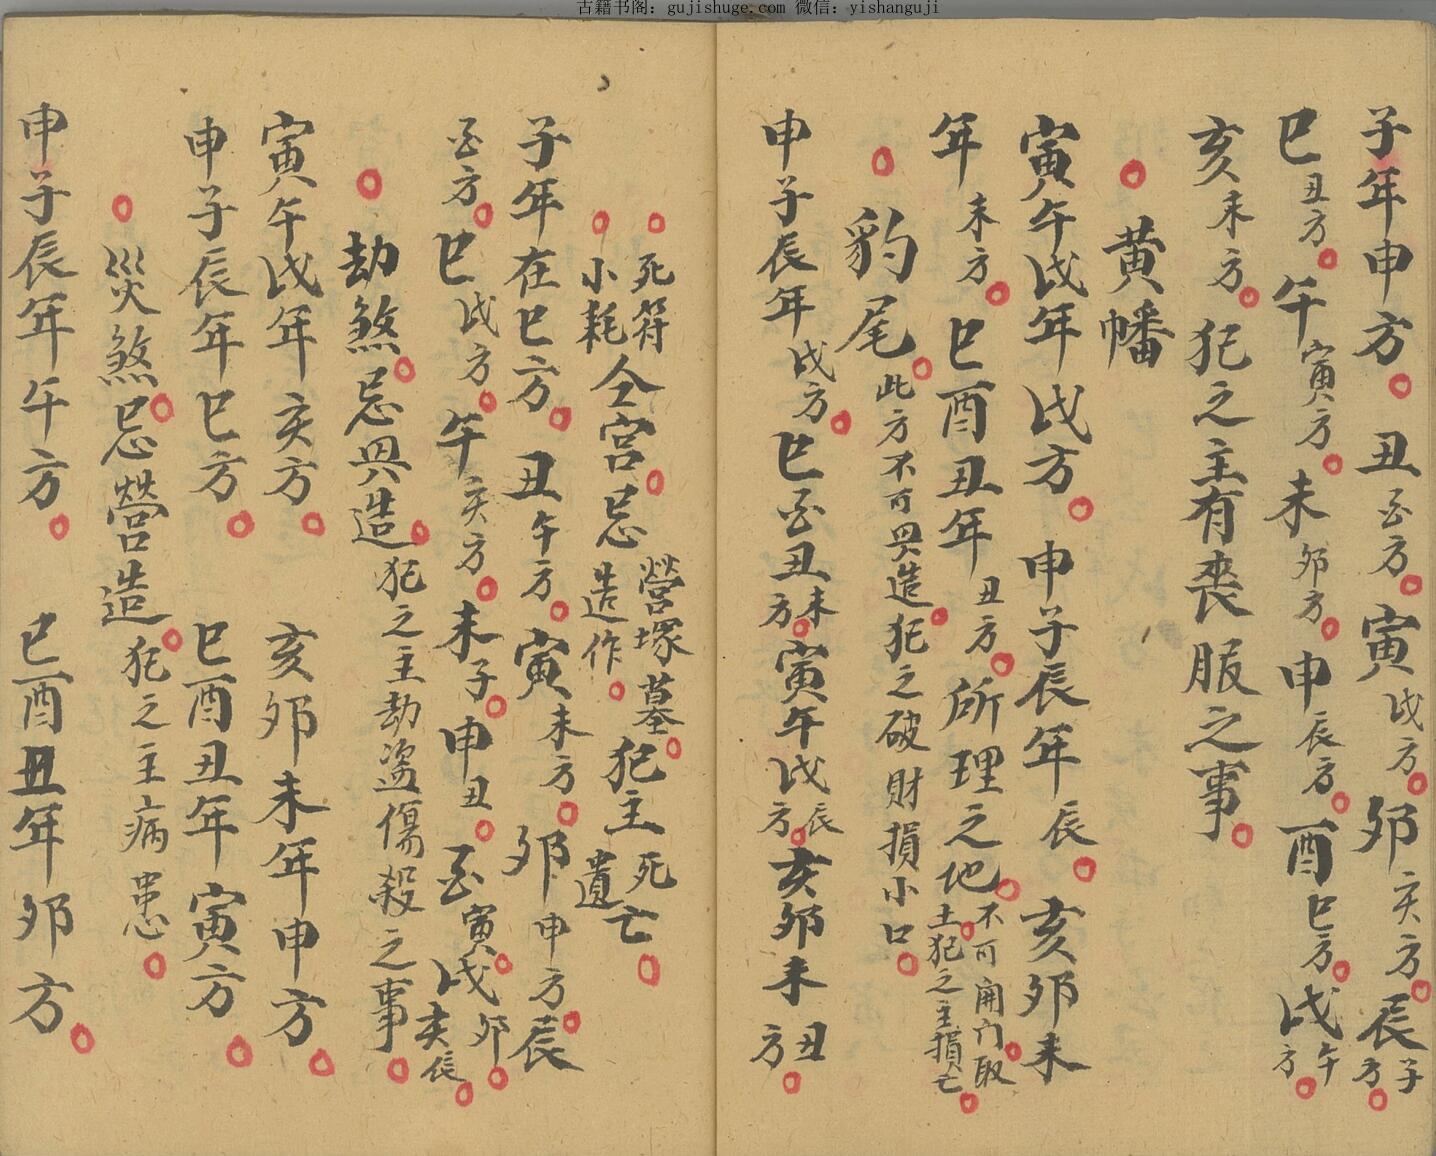 古籍书阁：gujishuge.com 微信：yishanguji
子年申方 丑酉方 寅戌方 卯亥方 辰子方
巳丑方 午寅方 未卯方 申辰方 酉巳方 戌午方
亥未方 犯之主有喪服之事
黄幡
寅午戌年戌方 申子辰年辰 亥卯未
年未方 巳酉丑年丑方 所理之地不可開门取土犯之主損亡
豹尾此方不可興造犯之破財損小口
申子辰年戌方 巳酉丑未方 寅午戌辰方 亥卯未丑方
死符小耗仝宮忌營塚墓造作犯主死亡遺
子年在巳方 丑午方 寅未方 卯申方 辰
酉方 巳戌方 午亥方 未子 申丑 酉寅 戌卯 亥辰
劫煞忌興造犯之主劫盜傷殺之事
寅午戌年亥方 亥卯未年申方
申子辰年巳方 巳酉丑年寅方
災煞忌營造犯之主病患
申子辰年午方 巳酉丑年卯方